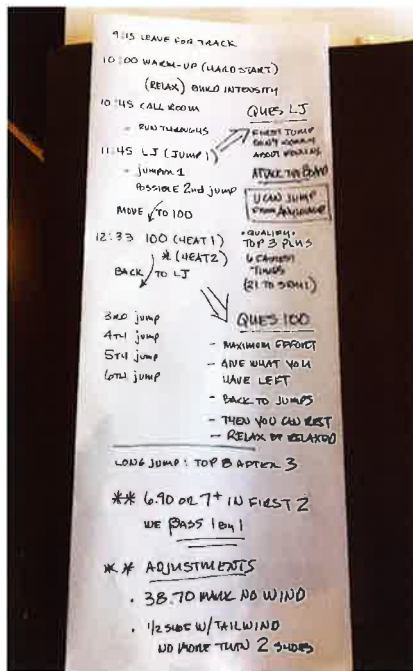 9:15 LEAVE FOR TRACK
10:00 WARM-UP (HARD START)
(RELAX) BUILD INTENSITY
10:45 CALL ROOM
- RUN THROUGHS
11:45 LJ (JUMP 1)
- JUMP 1
POSSIBLE 2nd jump
MOVE TO 100
12:33 100 (HEAT 1)
* (HEAT 2)
BACK TO LJ
3RD jump
4TH jump
5TH jump
6TH jump
QUES LJ
FIRST JUMP
DON'T WORRY
ABOUT
ATTACK THE BOARD
U CAN JUMP
FROM ANYWHERE
• QUALIFY •
TOP 3 PLUS
6 FASTEST
TIMES
(21 TO SEMI)
QUES 100
- MAXIMUM EFFORT
- GIVE WHAT YOU
HAVE LEFT
- BACK TO JUMPS
- THEN YOU CAN REST
- RELAX BE RELAXED
LONG JUMP: TOP 8 AFTER 3
** 6.90 OR 7+ IN FIRST 2
WE PASS 1 BY 1
** ADJUSTMENTS
• 38.70 MARK NO WIND
• 1/2 SHOE W/ TAILWIND
NO MORE THAN 2 SHOES